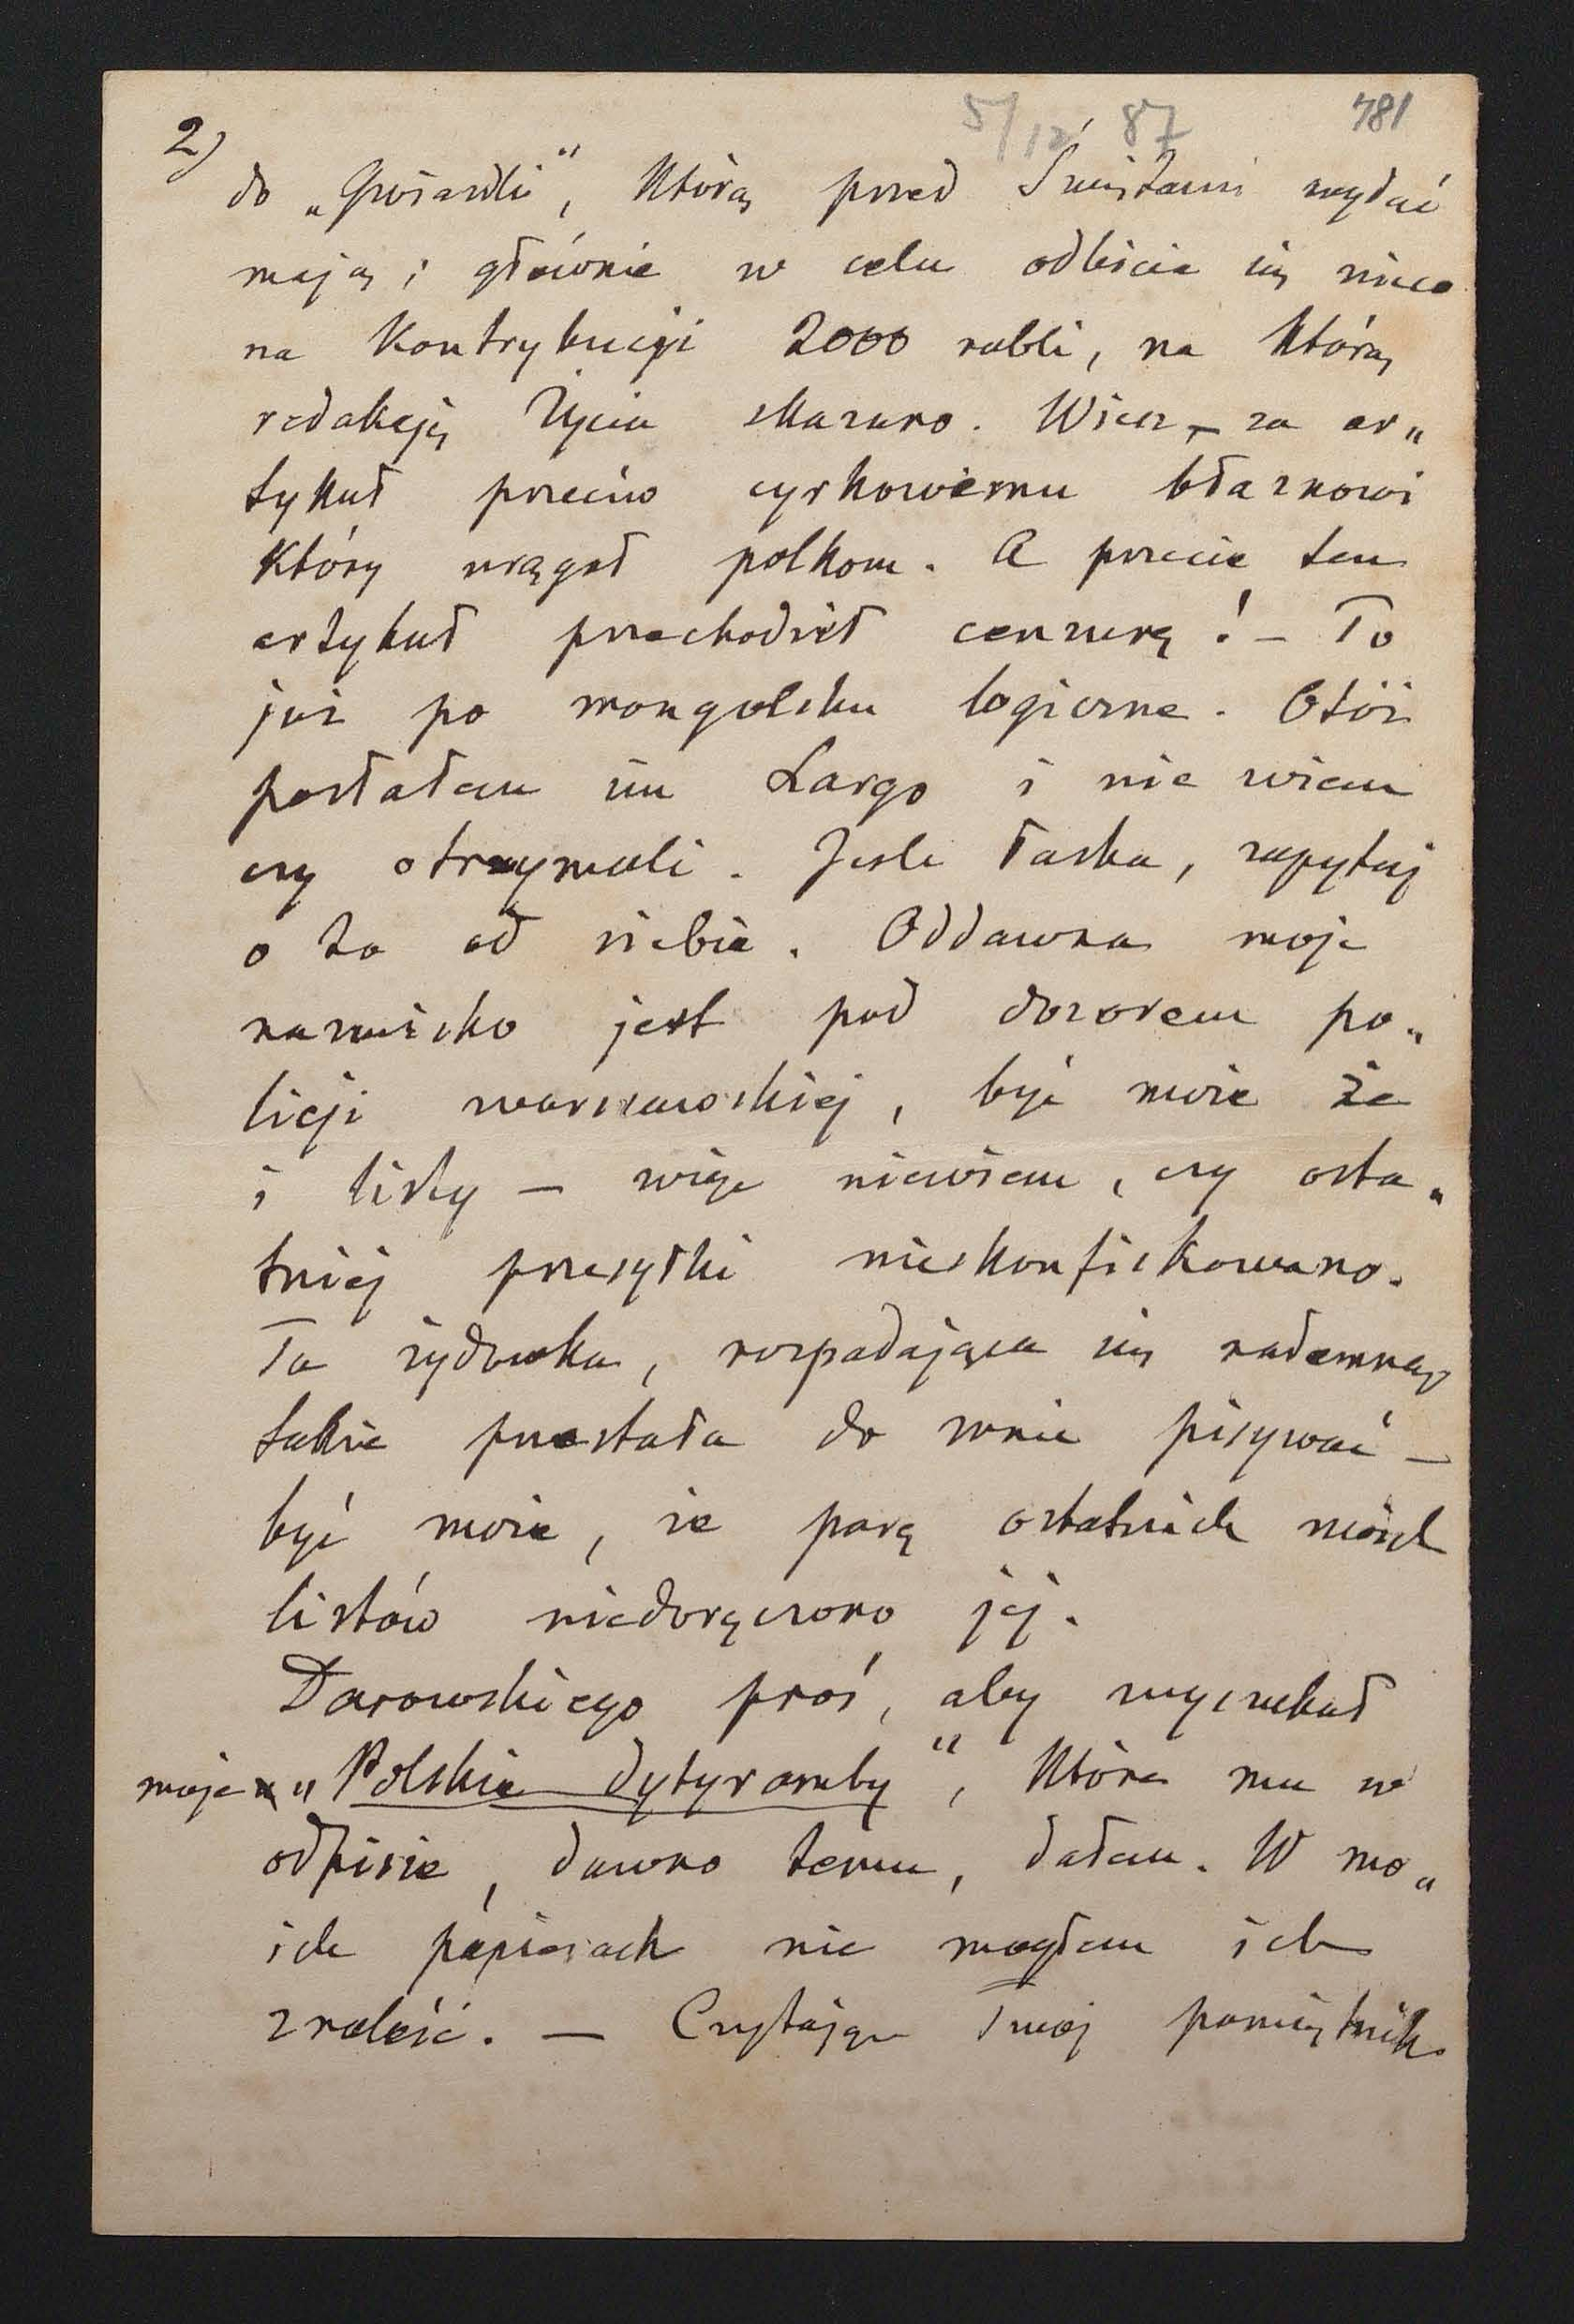 5/12 87 781
2)
do „Gwiazdki“, którą przed Świętami wydać
mają i głównie w celu odbicia się nieco
na kontrybucyi 2000 rubli, na którą
redakcję Życia skazano. Wiesz – za ar„
tykuł przeciw cyrkowemu błaznowi
który urągał polkom. A przecie ten
artykuł przechodził cenzurę! – To
już po mongolsku logiczne. Otóż
posłałem im Largo i nie wiem
czy otrzymali. Jeśli łaska, zapytaj
o to od siebie. Oddawna moje
nazwisko jest pod dozorem po„
licji warszawskiej, być może że
i listy – więc niewiem, czy osta„
tniej przesyłki nieskonfiskowano.
Ta żydówka, rozpadająca się nademną,
także przestała do mnie pisywać –
być może, że parę ostatnich moich
listów niedoręczono jej.
Darowskiego proś, aby wyszukał
moje „Polskie dytyramby“, które mu w
odpisie, dawno temu, dałem. W mo„
ich papierach nie mogłem ich
znaleść. – Czytając Twój pamiętnik